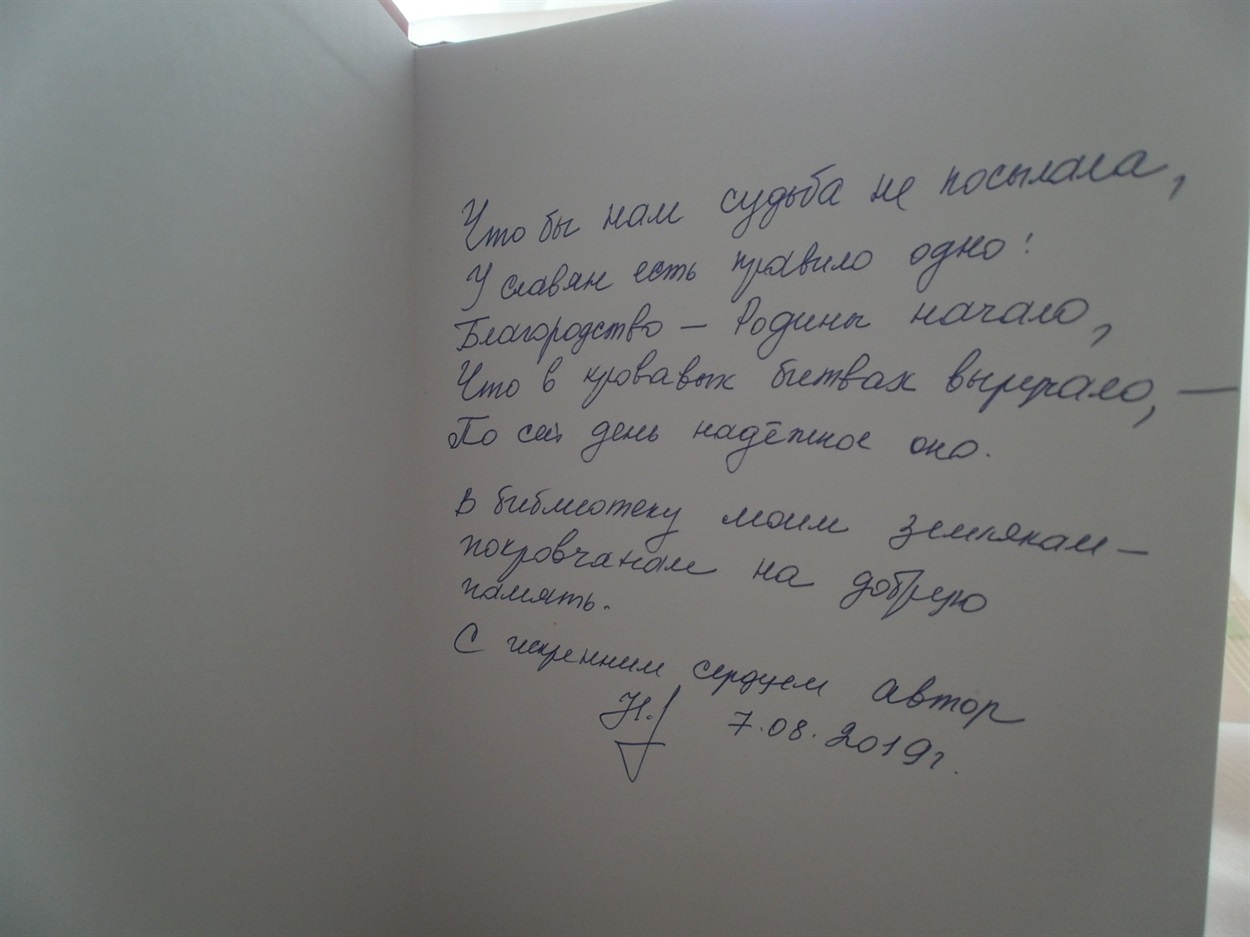 Что бы нам судьба не посылала,
У славян есть правило одно:
Благородство – Родины начало,
Что в кровавых битвах выручало, –
По сей день надёжное оно.
В библиотеку моим землякам –
покровчанам на добрую
память.
С искренним сердцем автор
7.08.2019г.